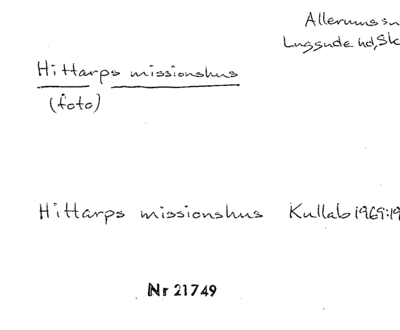 Allerums sn
Luggude hd, Sk
Hittarps missionshus
(foto)
Hittarps missionshus Kullab 1969:19
Nr 21749